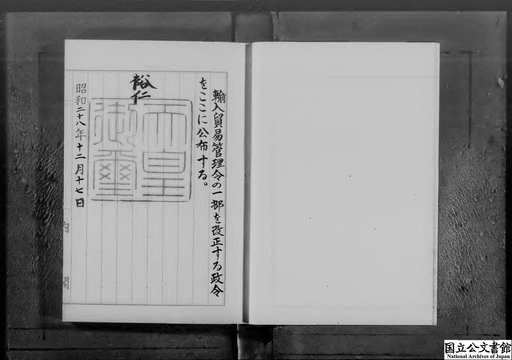 輸入貿易管理令の一部を改正する政令
をここに公布する。
裕仁
天皇
御璽
昭和二十八年十二月十七日
内閣
国立公文書館
National Archives of Japan